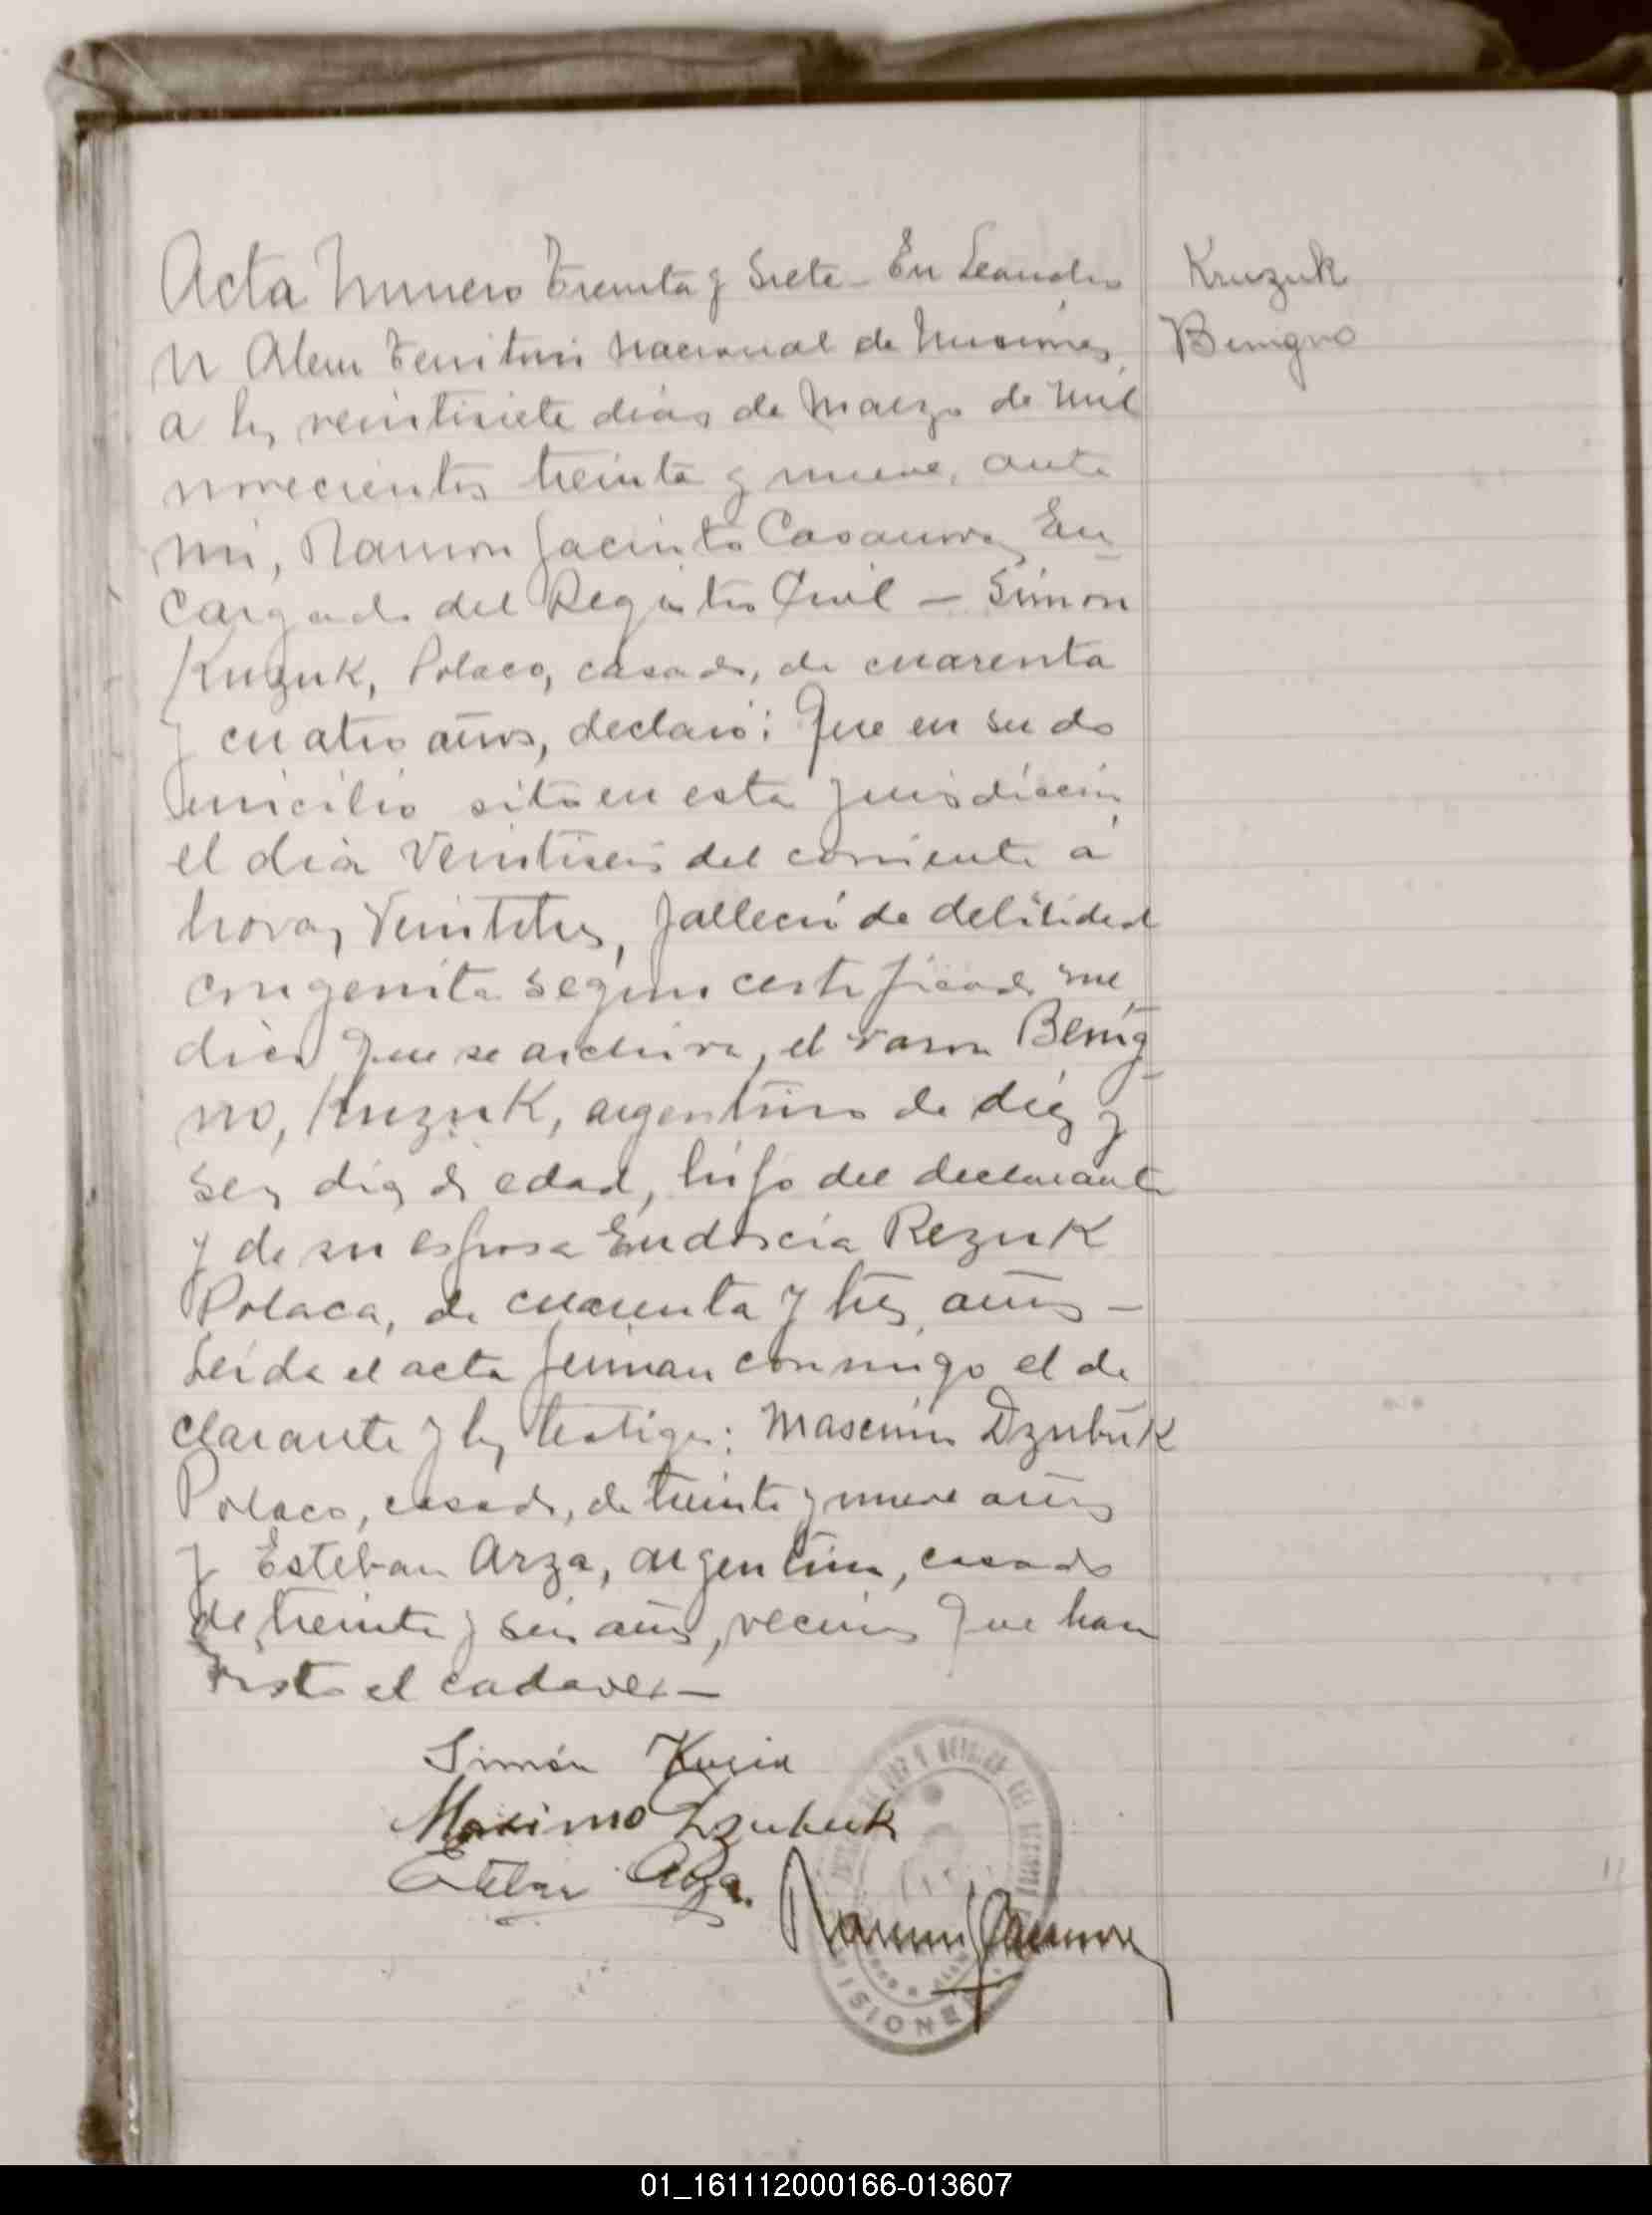 Acta Numero Treinta y Siete - En Leandro
N Alem Territorio Nacional de Misiones,
a los veintisiete dias de Marzo de Mil
novecientos treinta y nueve, ante
mi, Ramon Jacinto Casanova, En
cargado del Registro Civil - Simon
Kruzuk, Polaco, casado, de cuarenta
y cuatro años, declaró: Que en su do
micilio sito en esta jurisdiccion,
el dia veintiseis del corriente a
horas Veintitres, falleció de debilidad
congenita según certificado me
dico que se archiva, el varon Benig
no, Kruzuk, argentino de diez y
seis dias de edad, hijo del declarante
y de su esposa Eudoscia Rezuk
Polaca, de cuarenta y tres años -
Leida el acta firman conmigo el de
clarante y los testigos: Mascimo Dzubuk
Polaco, casado, de treinta y nueve años
y Esteban Arza, argentino, casado
de treinta y seis años, vecinos que han
visto el cadaver -
Kruzuk
Benigno
Simón
Maximo Dzubuk
Esteban Arza.
Ramon J Casanova
MISIONES
01_161112000166-013607